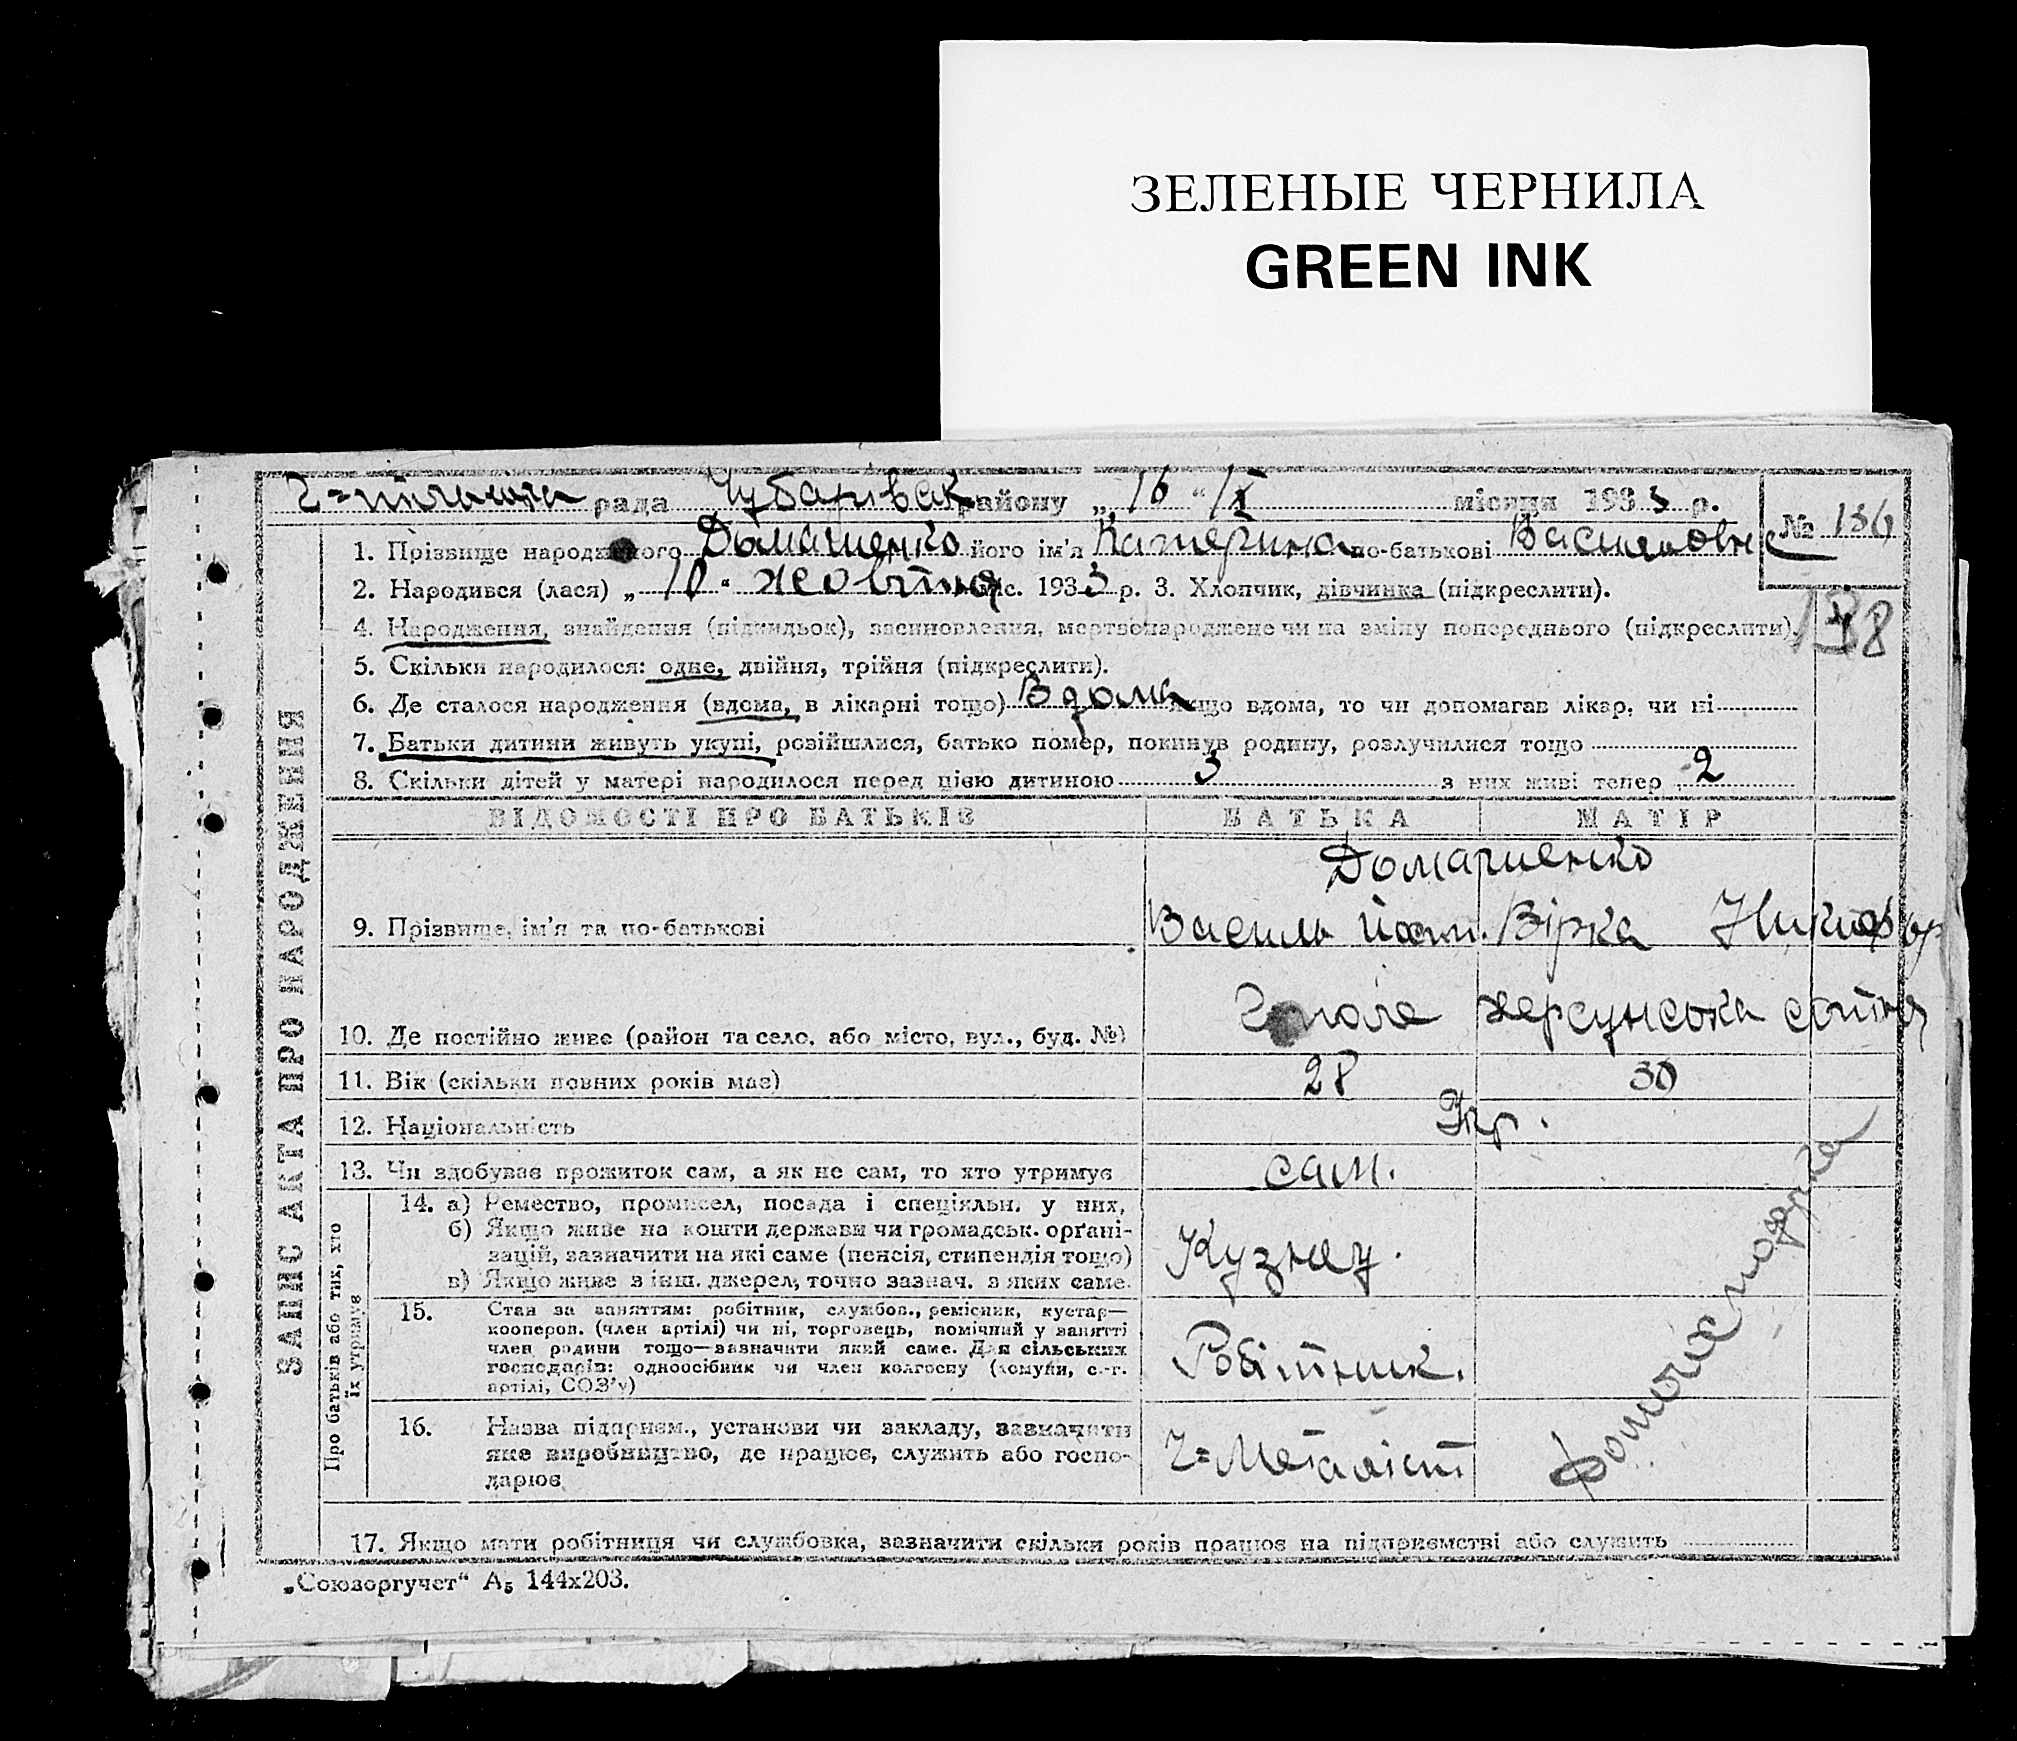 ЗЕЛЕНЫЕ ЧЕРНИЛА
GREEN INK
рада Чубарівськ району „ 16 “ / X місяця 1933 р.
№ 136
1. Прізвище народженого Домашенко його ім'я Катерина по-батькові Василовне
2. Народився (лася) „ 10 “ жовтня міс. 1933 р. 3. Хлопчик, дівчинка (підкреслити).
138
4. Народження, знайдення (підкидьок), засиновлення, мертвонароджене чи на зміну попереднього (підкреслити).
5. Скільки народилося: одне, двійня, трійня (підкреслити).
6. Де сталося народження (вдома, в лікарні тощо) Вдома якщо вдома, то чи допомагав лікар, чи ні
7. Батьки дитини живуть укупі, розійшлися, батько помер, покинув родину, розлучилися тощо
8. Скільки дітей у матері народилося перед цією дитиною 3 з них живі тепер 2
ЗАПИС АКТА ПРО НАРОДЖЕННЯ
ВІДОМОСТІ ПРО БАТЬКІВ БАТЬКА МАТІР
Домашенко
9. Прізвище, ім'я та по-батькові Василь Вірка Никифор
10. Де постійно живе (район та село, або місто, вул., буд. №) херсунська
11. Вік (скільки повних років має) 28 30
12. Національність Укр.
13. Чи здобуває прожиток сам, а як не сам, то хто утримує сам.
Про батьків або тих, хто їх утримує
14. а) Ремество, промисел, посада і спеціяльн. у них,
б) Якщо живе на кошти держави чи громадськ. орґані-
зацій, зазначити на які саме (пенсія, стипендія тощо)
в) Якщо живе з інш. джерел, точно зазнач. з яких саме.
Кузнец.
домогосподарка
15. Стан за заняттям: робітник, службов., ремісник, кустар—
кооперов. (член артілі) чи ні, торговець, помічний у занятті
член родини тощо—зазначити який саме. Для сільських
господарів: одноосібник чи член колгоспу (комуни, с.-г.
артілі, СОЗ'у)
Робітник.
16. Назва підприєм., установи чи закладу, зазначити
яке виробництво, де працює, служить або госпо-
дарює
Металіст
17. Якщо мати робітниця чи службовка, зазначити скільки років працює на підприємстві або служить
„Союзоргучет“ А₅ 144х203.